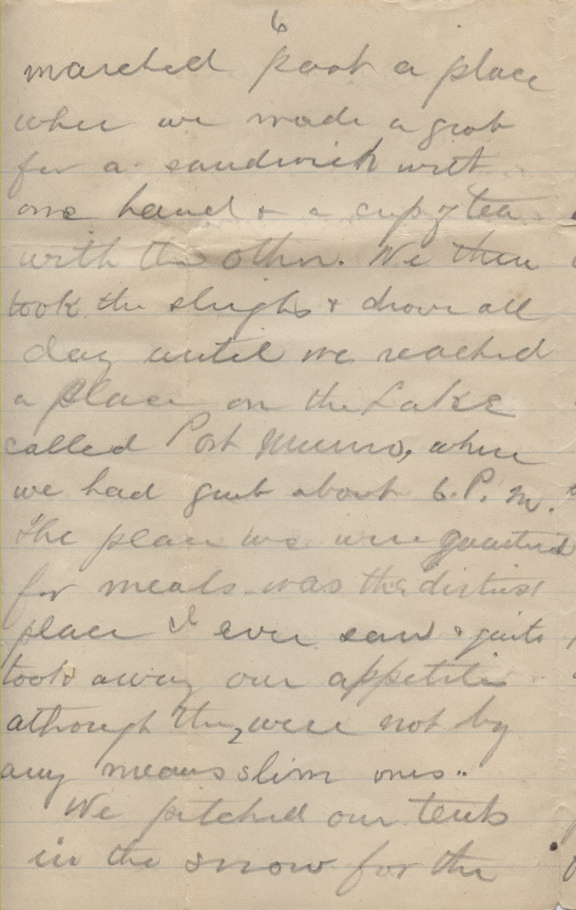 6
marched past a place
wher we made a grab
for a sandwich with
one hand & a cup of tea
with the other. We then
took the sleighs & drove all
day until we reached
a place on the Lake
called Port Munro, where
we had grub about 6. P. M.
The place we were quartered
for meals was the dirtiest
place I ever saw & quite
took away our appetites
although they were not by
any means slim ones.
We pitched our tents
in the snow for the